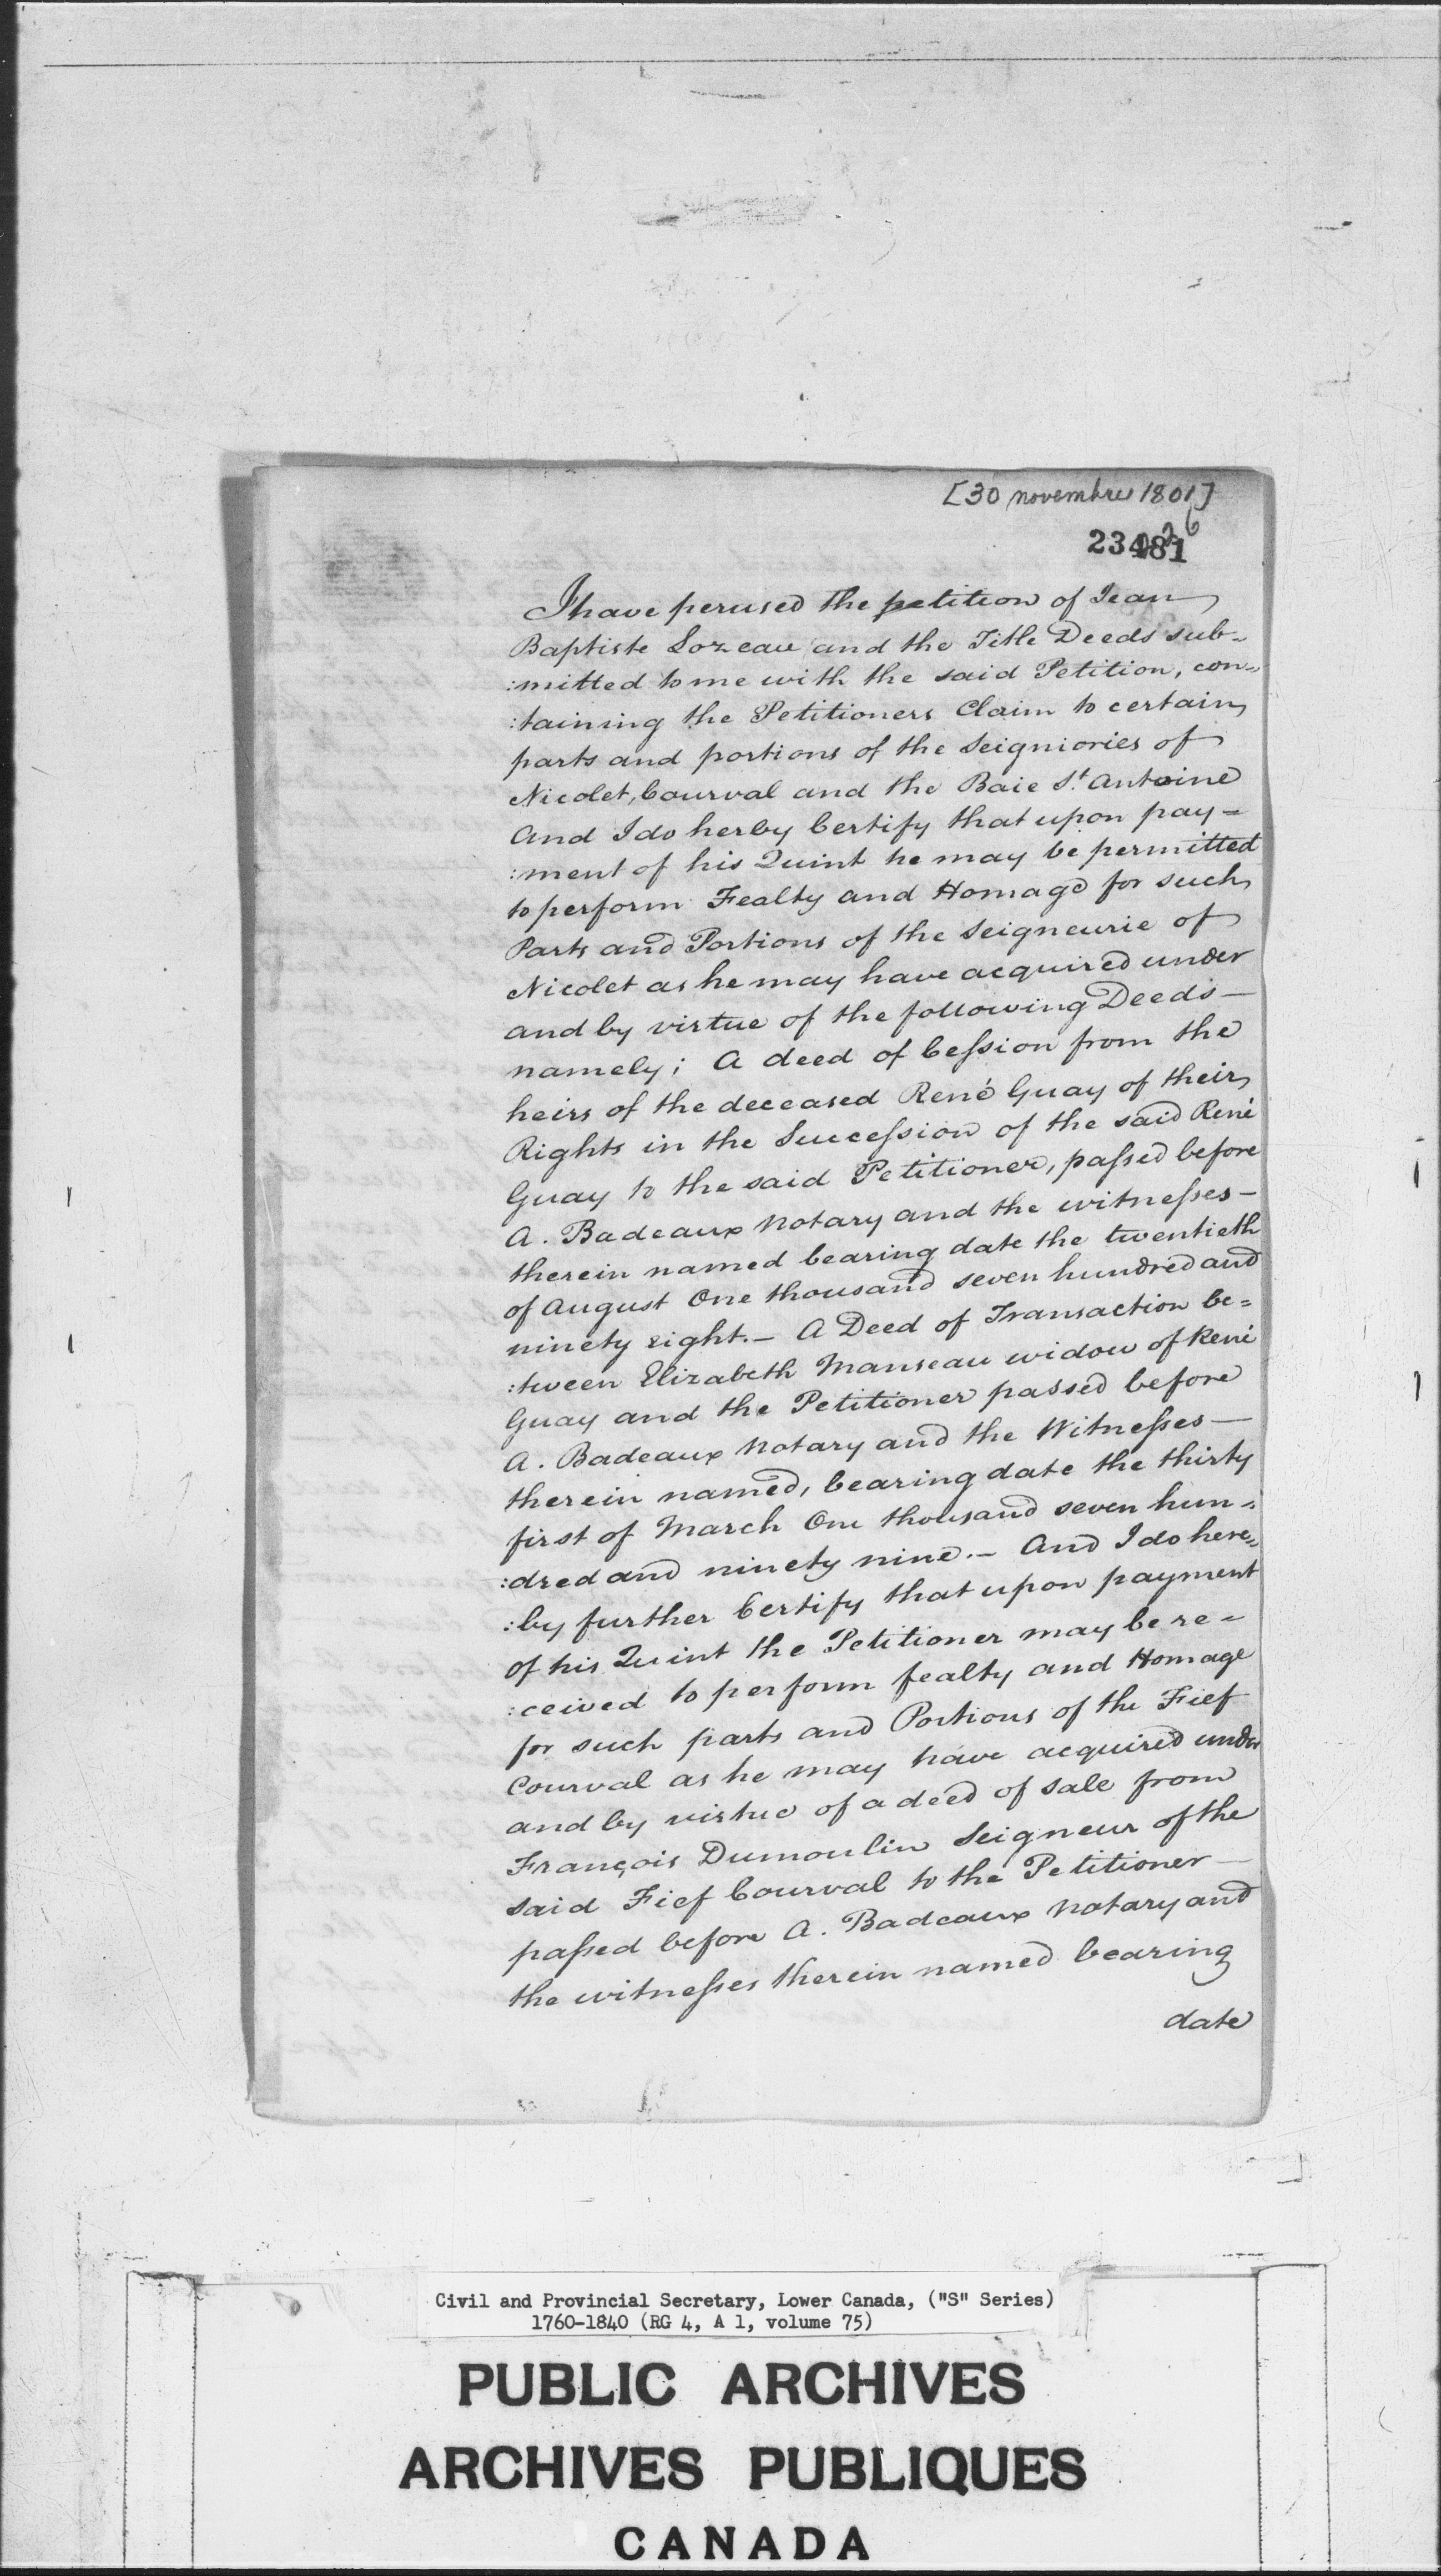 [30 novembre 1801]
23481
I have perused the petition of Jean
Baptiste Lozeau and the Title Deeds sub-
:mitted to me with the said Petition, con-
:taining the Petitioners Claim to certain
parts and portions of the Seigniories of
Nicolet, Courval and the Baie St. Antoine
And I do herby Certify that upon pay-
:ment of his Quint he may be permitted
to perform Fealty and Homage for such
Parts and Portions of the Seigneurie of
Nicolet as he may have acquired under
and by virtue of the following Deeds —
namely; A deed of Cession from the
heirs of the deceased René Guay of their
Rights in the Succession of the said René
Guay to the said Petitioner, passed before
A. Badeaux Notary and the witnesses —
therein named bearing date the twentieth
of August One thousand seven hundred and
ninety eight. — A Deed of Transaction be=
:tween Elizabeth Manseau widow of René
Guay and the Petitioner passed before
A. Badeaux Notary and the Witnesses —
therein named, bearing date the thirty
first of March One thousand seven hun-
:dred and ninety nine. — And I do here-
:by further Certify that upon payment
of his Quint the Petitioner may be re-
:ceived to perform fealty and Homage
for such parts and Portions of the Fief
Courval as he may have acquired under
and by virtue of a deed of sale from
François Dumoulin Seigneur of the
said Fief Courval to the Petitioner —
passed before A. Badeaux Notary and
the witnesses therein named bearing
date
Civil and Provincial Secretary, Lower Canada, ("S" Series)
1760-1840 (RG 4, A 1, volume 75)
PUBLIC ARCHIVES
ARCHIVES PUBLIQUES
CANADA